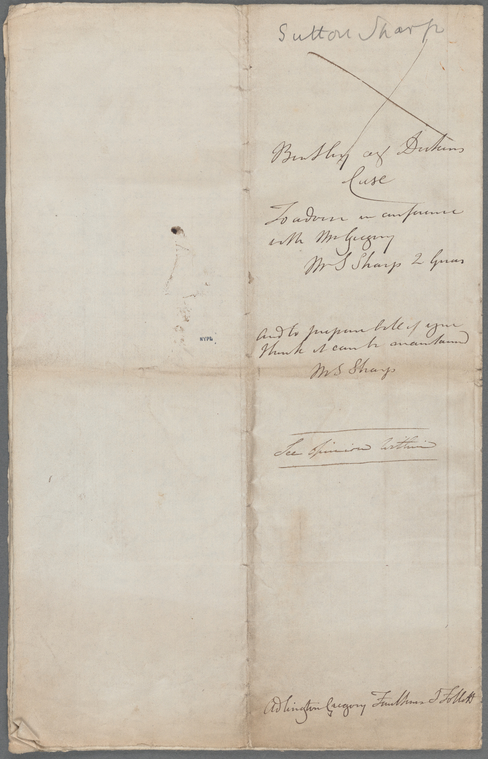 Sutton Sharp
Bentley agt Dickens
Case
To advise in conference
with Mr Gregory
Mr S Sharp 2 Guas
And to prepare bill if you
think it can be maintained
Mr S Sharp
NYPL
See opinion within
Adlington Gregory Faulkner & Follett